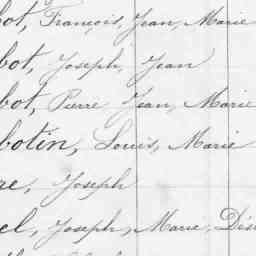 bot, François, Jean, Marie
bot, Joseph, Jean
bot, Pierre, Jean, Marie
botin, Louis, Marie
re, Joseph
el, Joseph, Marie, Dés